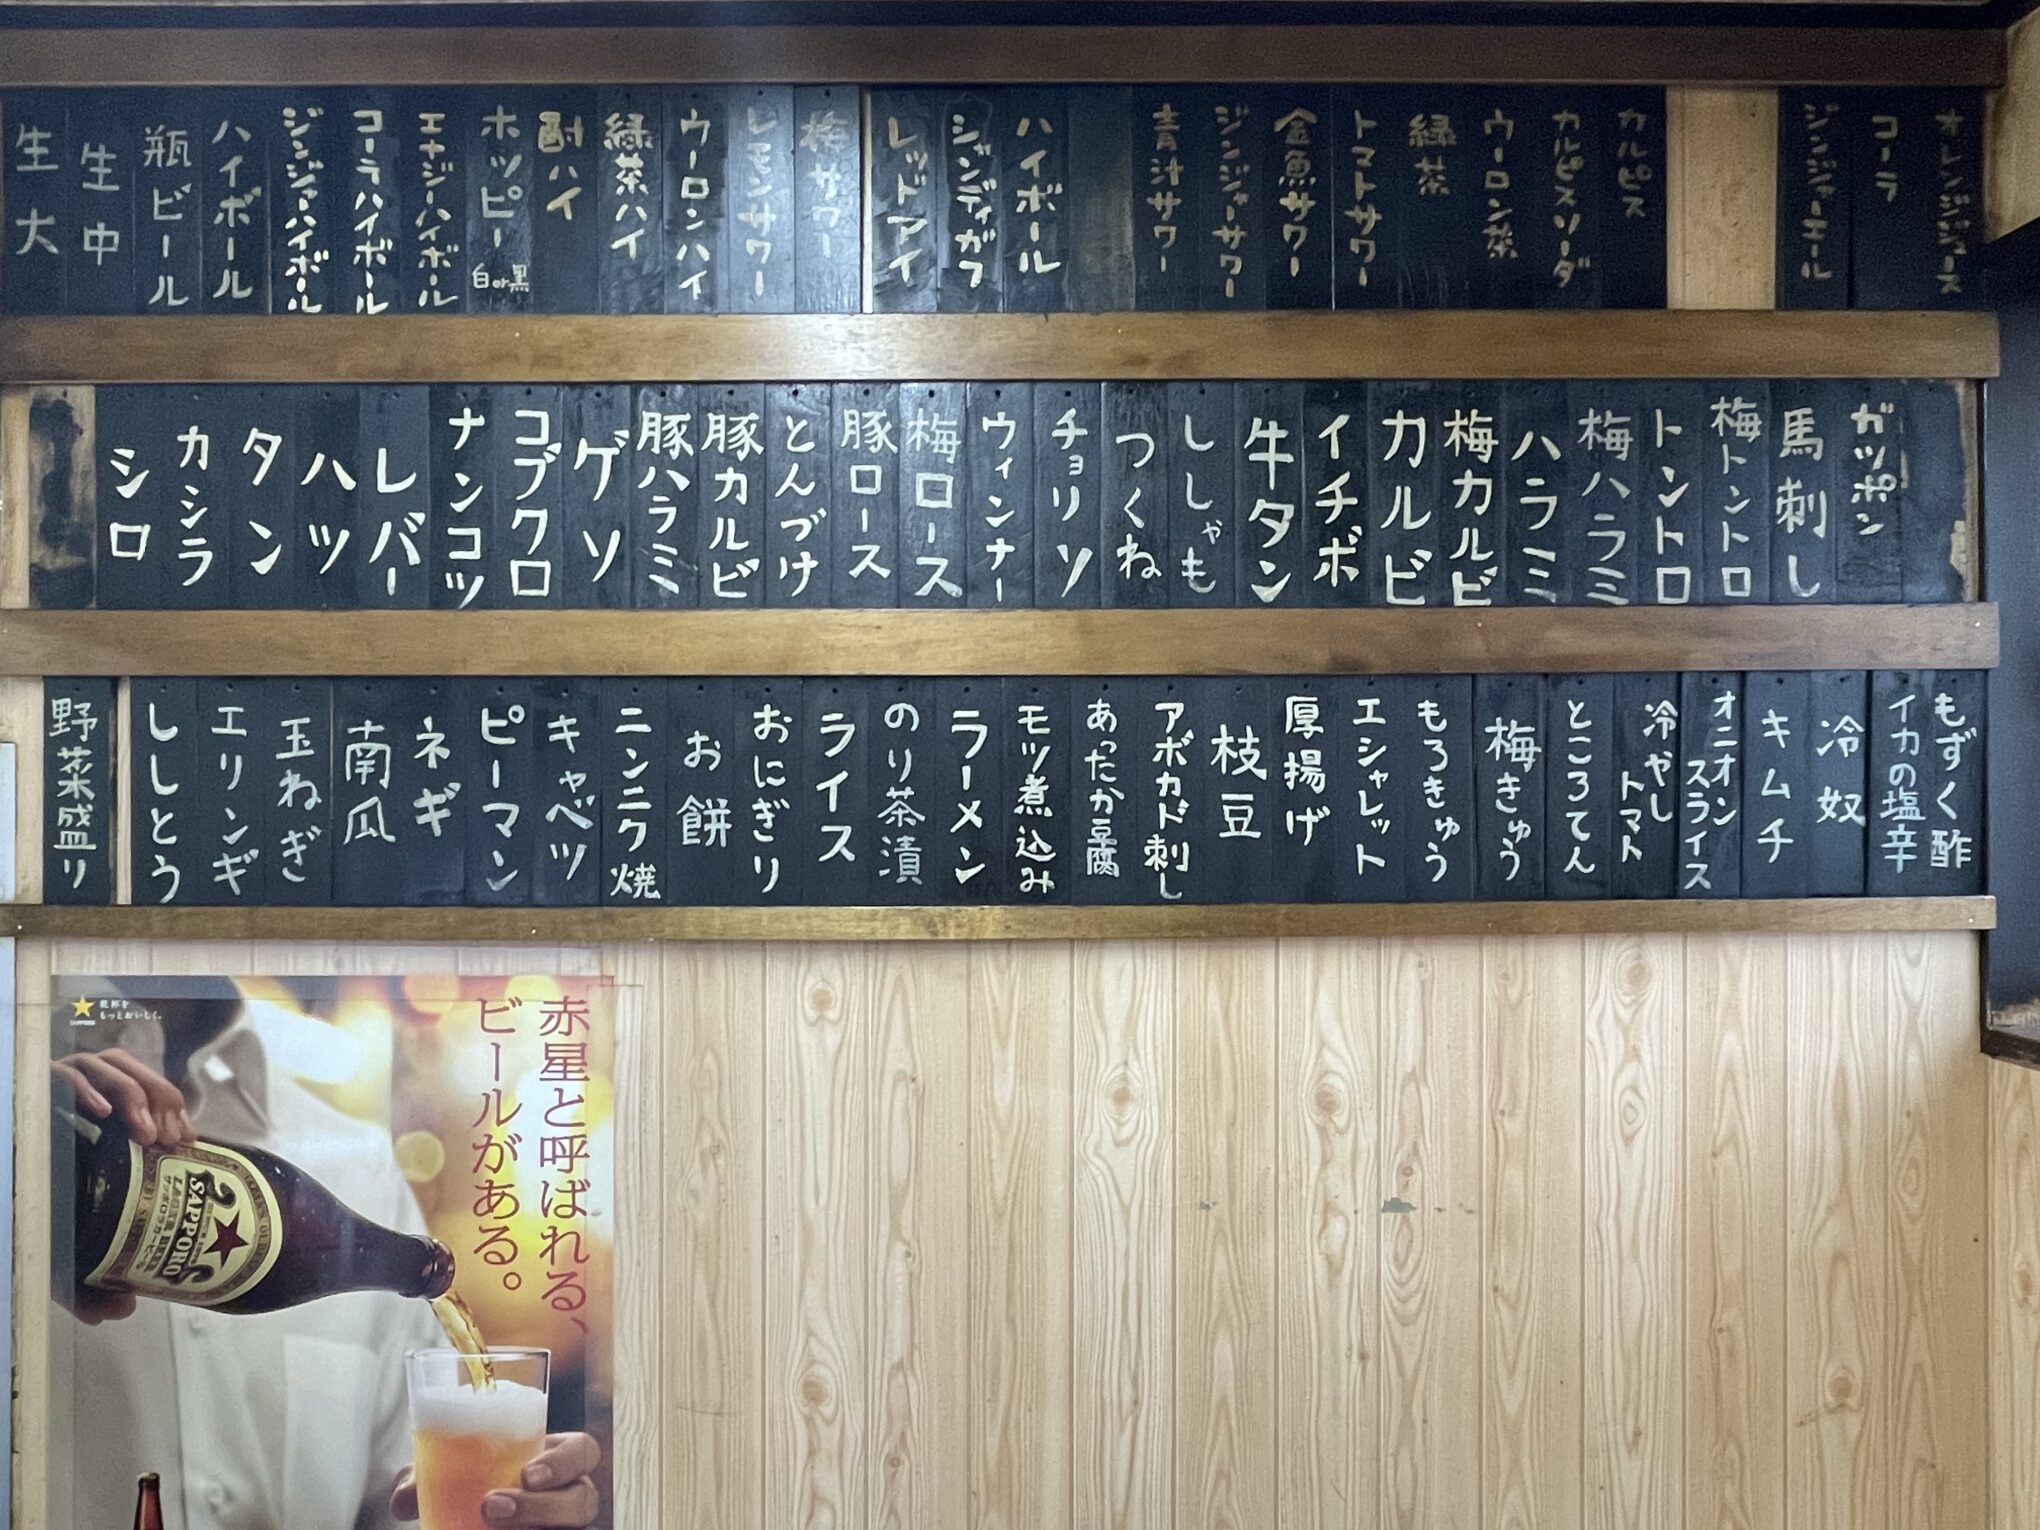 オレンジジュース
コーラ
ジンジャーエール
カルピス
カルピスソーダ
ウーロン茶
緑茶
トマトサワー
金魚サワー
ジンジャーサワー
青汁サワー
ハイボール
シャンディガフ
レッドアイ
梅サワー
レモンサワー
ウーロンハイ
緑茶ハイ
酎ハイ
ホッピー
白or黒
エナジーハイボール
コーラハイボール
ジンジャーハイボール
ハイボール
瓶ビール
生中
生大
ガツポン
馬刺し
梅トントロ
トントロ
梅ハラミ
ハラミ
梅カルビ
カルビ
イチボ
牛タン
ししゃも
つくね
チョリソ
ウィンナー
梅ロース
豚ロース
とんづけ
豚カルビ
豚ハラミ
ゲソ
コブクロ
ナンコツ
レバー
ハツ
タン
カシラ
シロ
もずく酢
イカの塩辛
冷奴
キムチ
オニオン
スライス
冷やし
トマト
ところてん
梅きゅう
もろきゅう
エシャレット
厚揚げ
枝豆
アボカド刺し
あったか豆腐
モツ煮込み
ラーメン
のり茶漬
ライス
おにぎり
お餅
ニンニク焼
キャベツ
ピーマン
ネギ
南瓜
玉ねぎ
エリンギ
ししとう
野菜盛り
乾杯を
もっとおいしく。
SAPPORO
赤星と呼ばれる、
ビールがある。
SAPPORO
LAGER BEER
サッポロラガービール